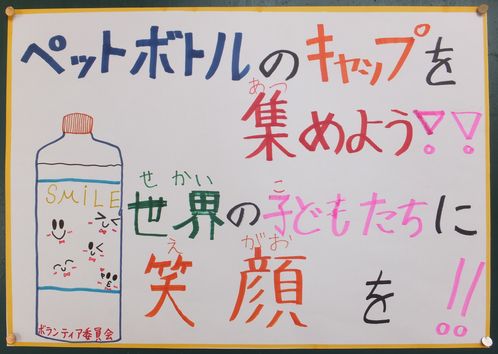 ペットボトルのキャップを
あつ
集めよう!!
せかい こ
世界の子どもたちに
え がお
笑顔を!!
SMiLE
ボランティア委員会